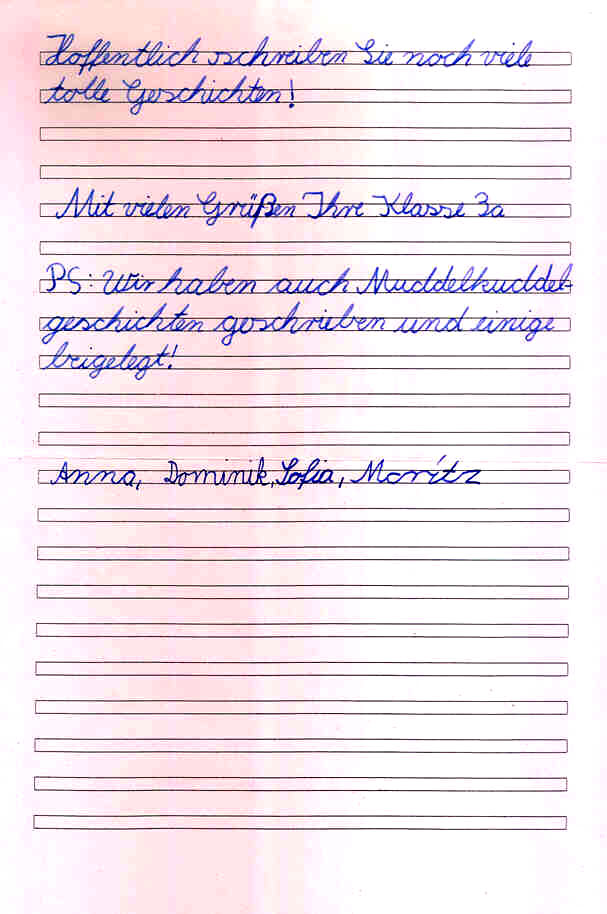 Hoffentlich schreiben Sie noch viele
tolle Geschichten!
Mit vielen Grüßen Ihre Klasse 3a
PS: Wir haben auch Muddelkuddel-
geschichten geschrieben und einige
beigelegt!
Anna, Dominik, Sofia, Moritz